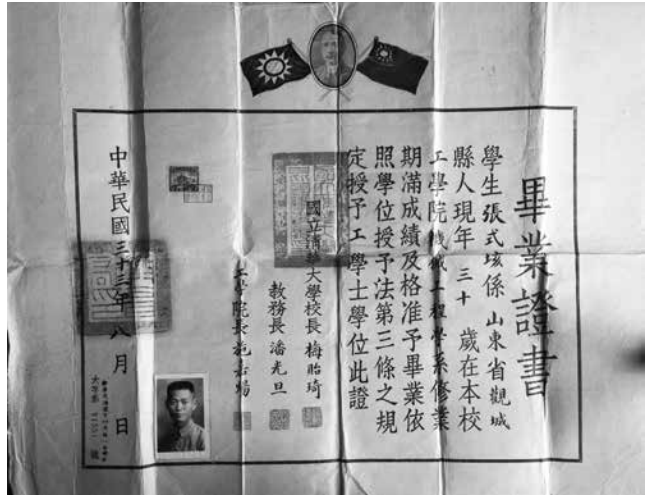 畢業證書
學生張式垓係山東省觀城
縣人現年三十歲在本校
工學院機械工程學系修業
期滿成績及格准予畢業依
照學位授予法第三條之規
定授予工學士學位此證
國立清華大學校長梅貽琦
教務長潘光旦
工學院長施嘉煬
中華民國三十三年八月 日